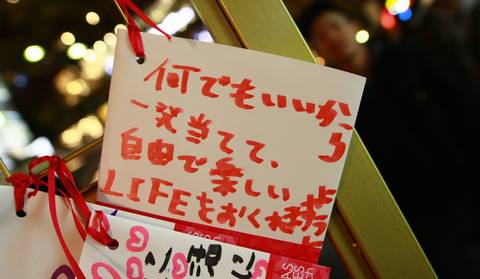 何でもいいから
一発当てて、
自由で楽しい
LIFEをおくれ